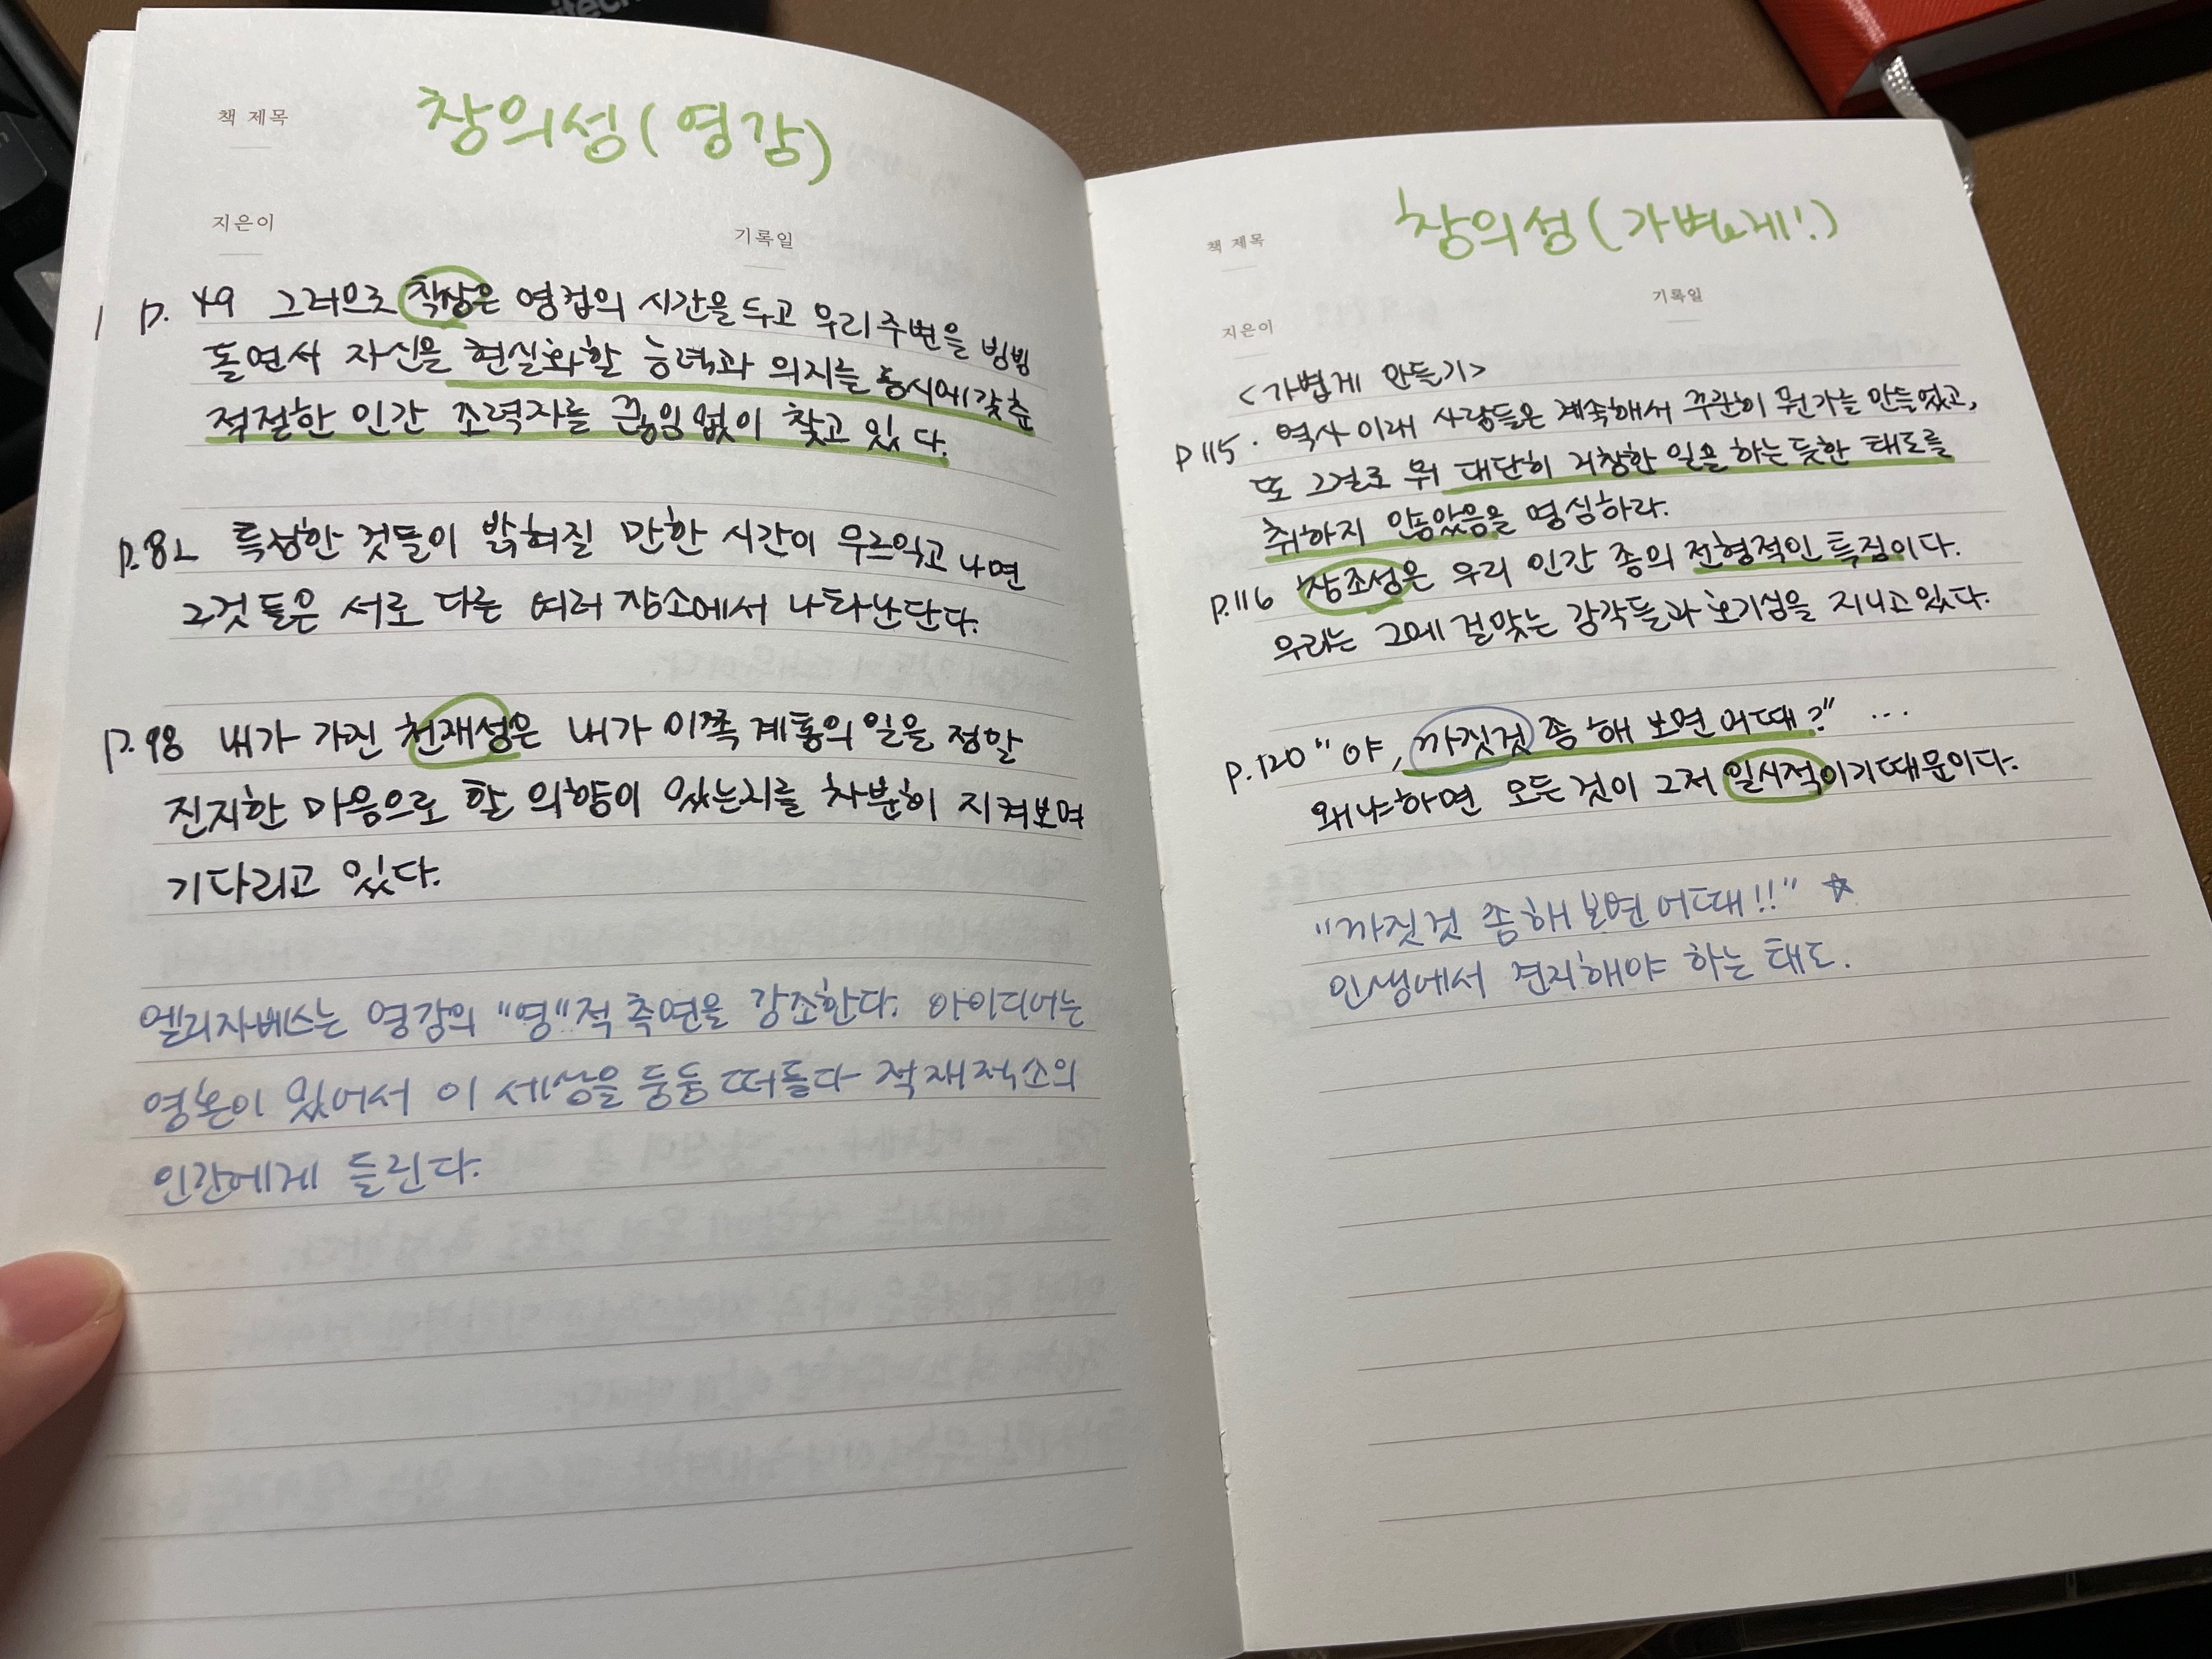 책 제목
창의성(영감)
지은이
기록일
p. 49 그러므로 착상은 영겁의 시간을 두고 우리 주변을 빙빙
돌면서 자신을 현실화할 능력과 의지를 동시에 갖춘
적절한 인간 조력자를 끊임없이 찾고 있다.
p.82 특정한 것들이 밝혀질 만한 시간이 무르익고 나면
그것들은 서로 다른 여러 장소에서 나타난단다.
p.98 내가 가진 천재성은 내가 이쪽 계통의 일을 정말
진지한 마음으로 할 의향이 있는지를 차분히 지켜보며
기다리고 있다.
엘리자베스는 영감의 "영"적 측면을 강조한다. 아이디어는
영혼이 있어서 이 세상을 둥둥 떠돌다 적재적소의
인간에게 들린다.
책 제목
창의성(가볍게!)
기록일
지은이
<가볍게 만들기>
p115. 역사 이래 사람들은 계속해서 꾸준히 뭔가를 만들었고,
또 그걸로 뭐 대단히 거창한 일을 하는 듯한 태도를
취하지 않았음을 명심하라.
p.116 창조성은 우리 인간 종의 전형적인 특징이다.
우리는 그에 걸맞는 감각들과 호기심을 지니고 있다.
p.120 "야, 까짓것 좀 해 보면 어때?" ...
왜냐하면 모든 것이 그저 일시적이기 때문이다.
"까짓것 좀 해 보면 어때!!" ☆
인생에서 견지해야 하는 태도.